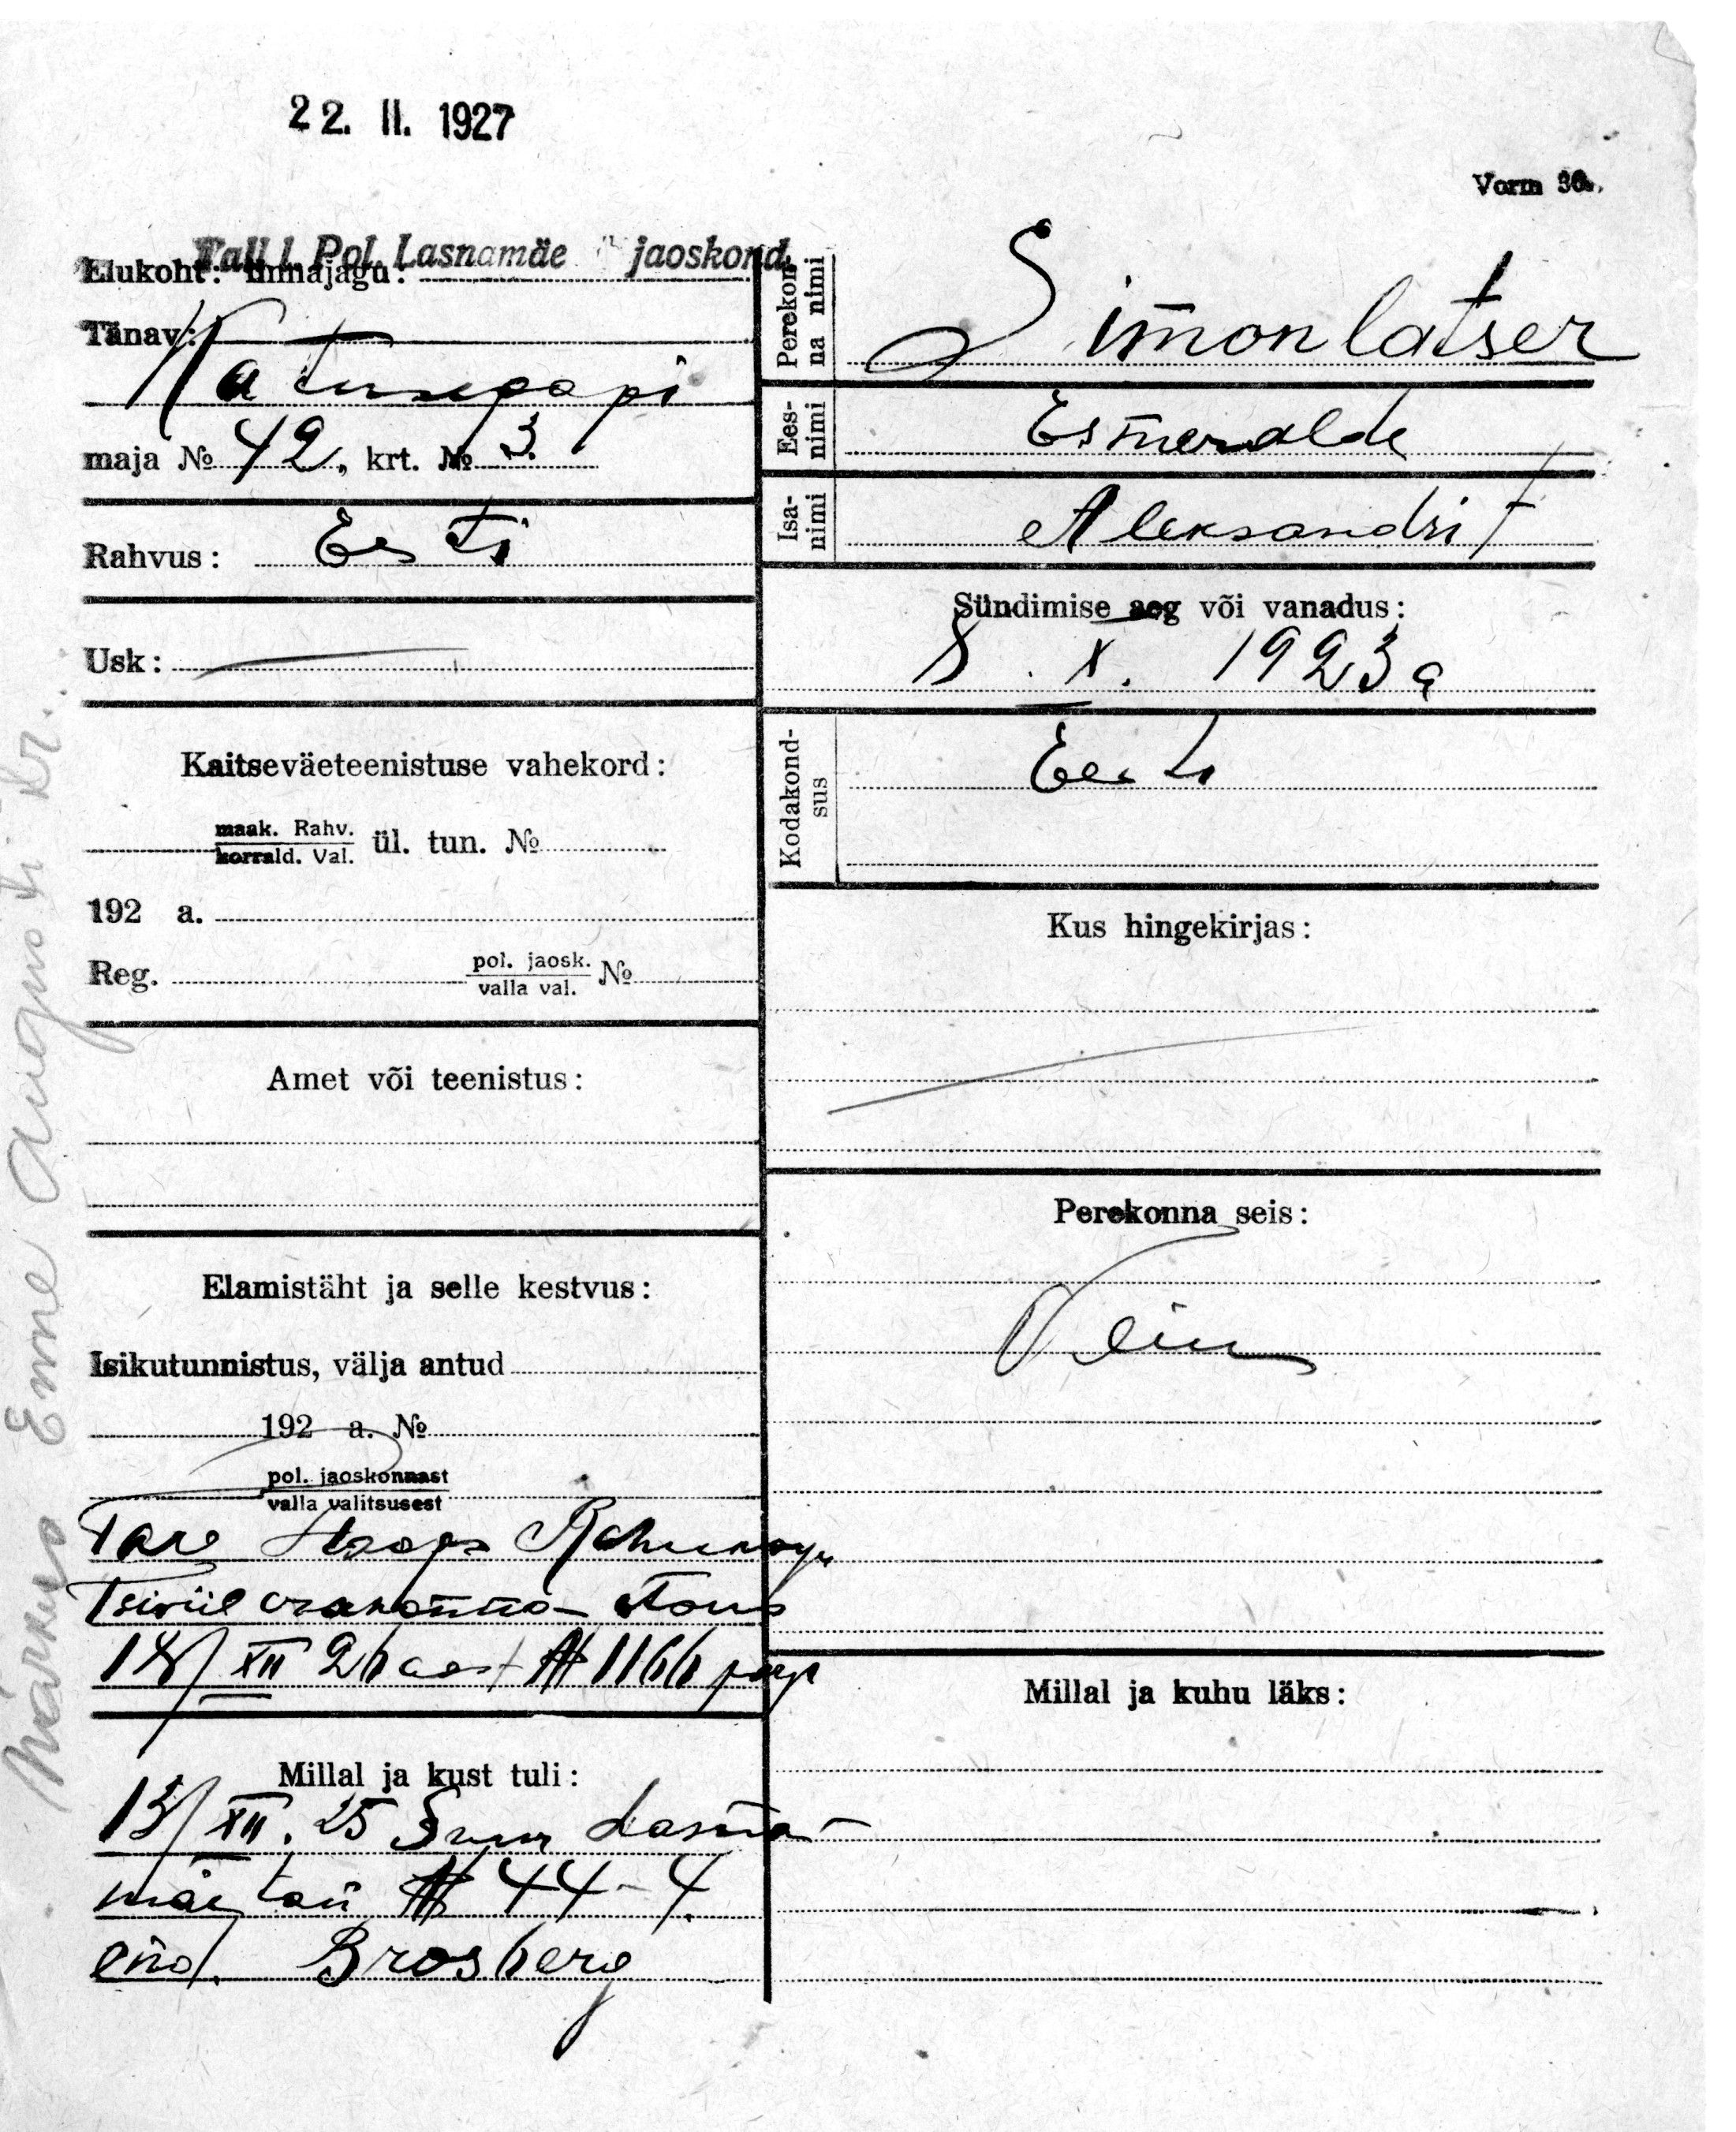 22. II. 1927
Vorm 36.
Tall. l. Pol. Lasnamäe jaoskond.
Elukoht: linnajagu:
Tänav:
Katusepapi
maja № 42, krt. № 3.
Rahvus: Eesti
Usk:
Kaitseväeteenistuse vahekord:
maak. Rahv.
korrald. Val.
ül. tun. №
192 a.
Reg. pol. jaosk. №
valla val.
Amet või teenistus:
Elamistäht ja selle kestvus:
Isikutunnistus, välja antud
192 a. №
pol. jaoskonnast
valla valitsusest
18/XII 26 № 1166
Millal ja kust tuli:
13/XII. 25 Suur Lasna-
mäe tän № 44-4
end. Brosberg
Perekonna nimi
Simonlatser
Eesnimi
Esmeralde
Isanimi
Aleksandri
Sündimise aeg või vanadus:
8. X. 1923 a
Kodakondsus
Eesti
Kus hingekirjas:
Perekonna seis:
Millal ja kuhu läks:
Märkus Eme Augusti tr.